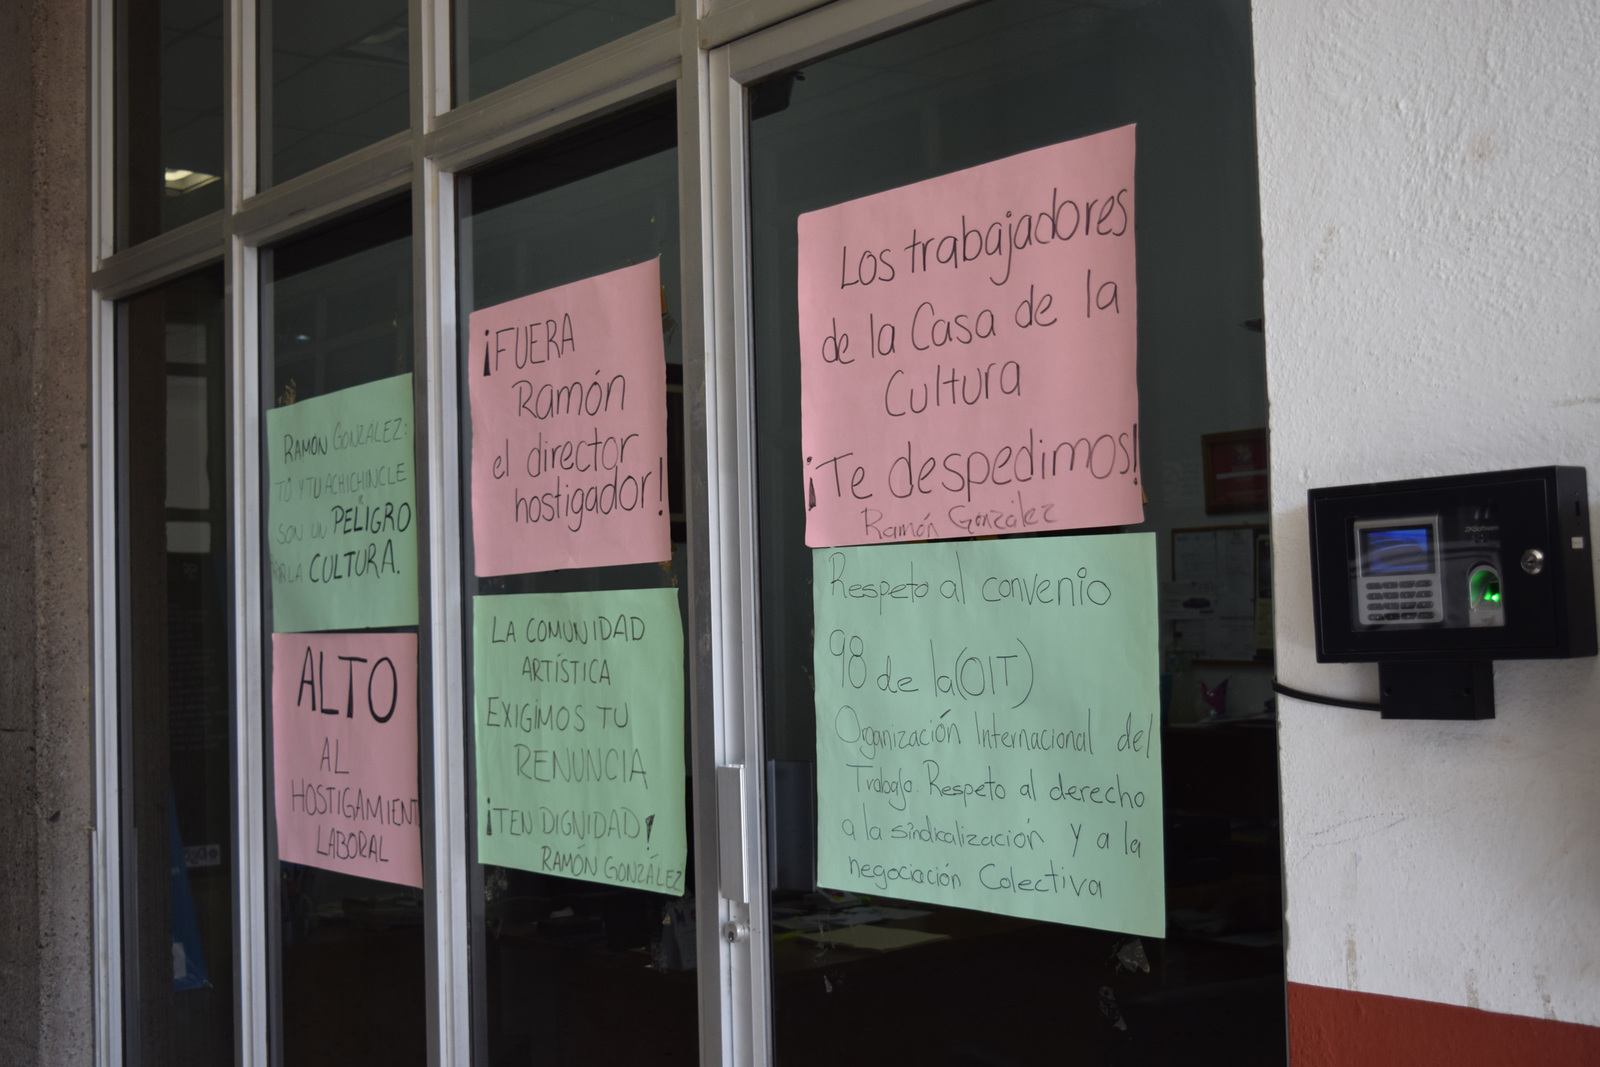 RAMÓN GONZALEZ:
TÚ Y TU ACHICHINCLE
SON UN PELIGRO
LA CULTURA.
ALTO
AL
HOSTIGAMIENT
LABORAL
¡FUERA
Ramón
el director
hostigador!
LA COMUNIDAD
ARTÍSTICA
EXIGIMOS TU
RENUNCIA
¡TEN DIGNIDAD!
RAMÓN GONZÁLEZ
Los trabajadores
de la Casa de la
Cultura
¡Te despedimos!
Ramón González
Respeto al convenio
98 de la (OIT)
Organización Internacional del
Trabajo. Respeto al derecho
a la sindicalización y a la
negociación Colectiva